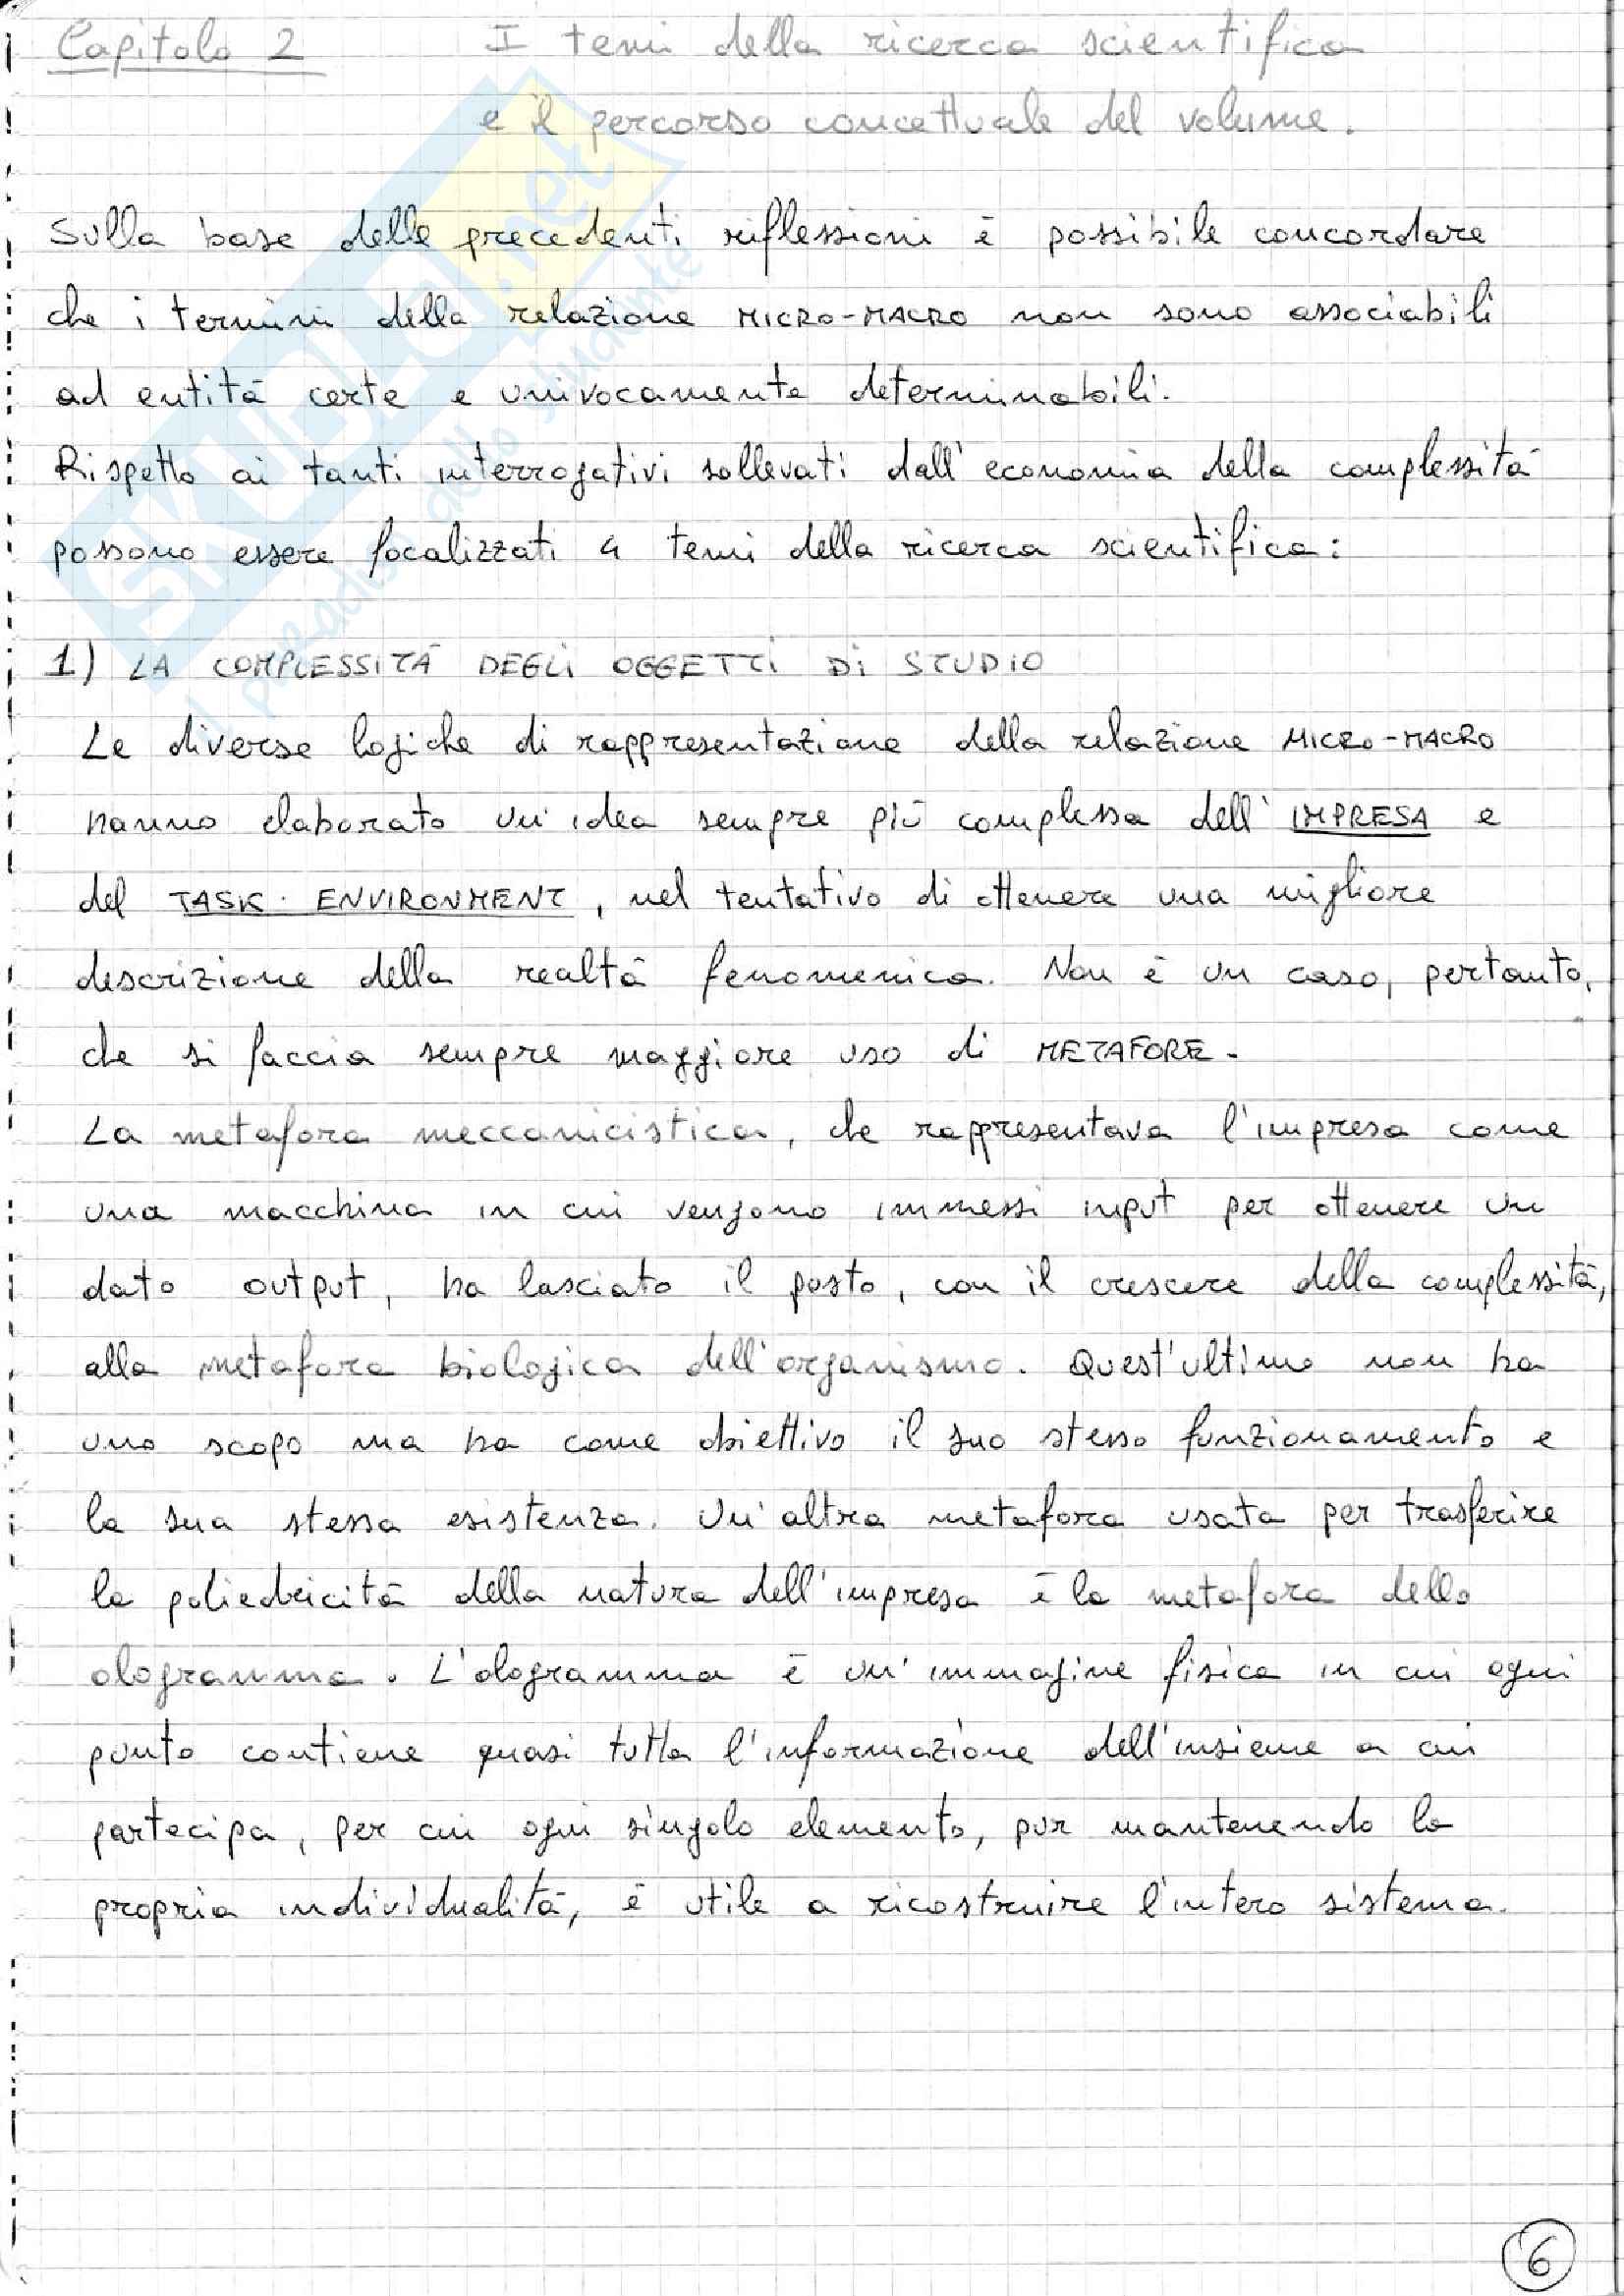 Capitolo 2 I temi della ricerca scientifica
e il percorso concettuale del volume.
Sulla base delle precedenti riflessioni è possibile concordare
che i termini della relazione MICRO-MACRO non sono associabili
ad entità certe e univocamente determinabili.
Rispetto ai tanti interrogativi sollevati dall'economia della complessità
possono essere focalizzati 4 temi della ricerca scientifica:
1) LA COMPLESSITÀ DEGLI OGGETTI DI STUDIO
Le diverse logiche di rappresentazione della relazione MICRO-MACRO
hanno elaborato un'idea sempre più complessa dell'IMPRESA e
del TASK-ENVIRONMENT, nel tentativo di ottenere una migliore
descrizione della realtà fenomenica. Non è un caso, pertanto,
che si faccia sempre maggiore uso di METAFORE.
La metafora meccanicistica, che rappresentava l'impresa come
una macchina in cui vengono immessi input per ottenere un
dato output, ha lasciato il posto, con il crescere della complessità,
alla metafora biologica dell'organismo. Quest'ultimo non ha
uno scopo ma ha come obiettivo il suo stesso funzionamento e
la sua stessa esistenza. Un'altra metafora usata per trasferire
la poliedricità della natura dell'impresa è la metafora dello
ologramma. L'ologramma è un'immagine fisica in cui ogni
punto contiene quasi tutta l'informazione dell'insieme a cui
partecipa, per cui ogni singolo elemento, pur mantenendo la
propria individualità, è utile a ricostruire l'intero sistema.
6
SKUOLA.net
il paradiso dello studente